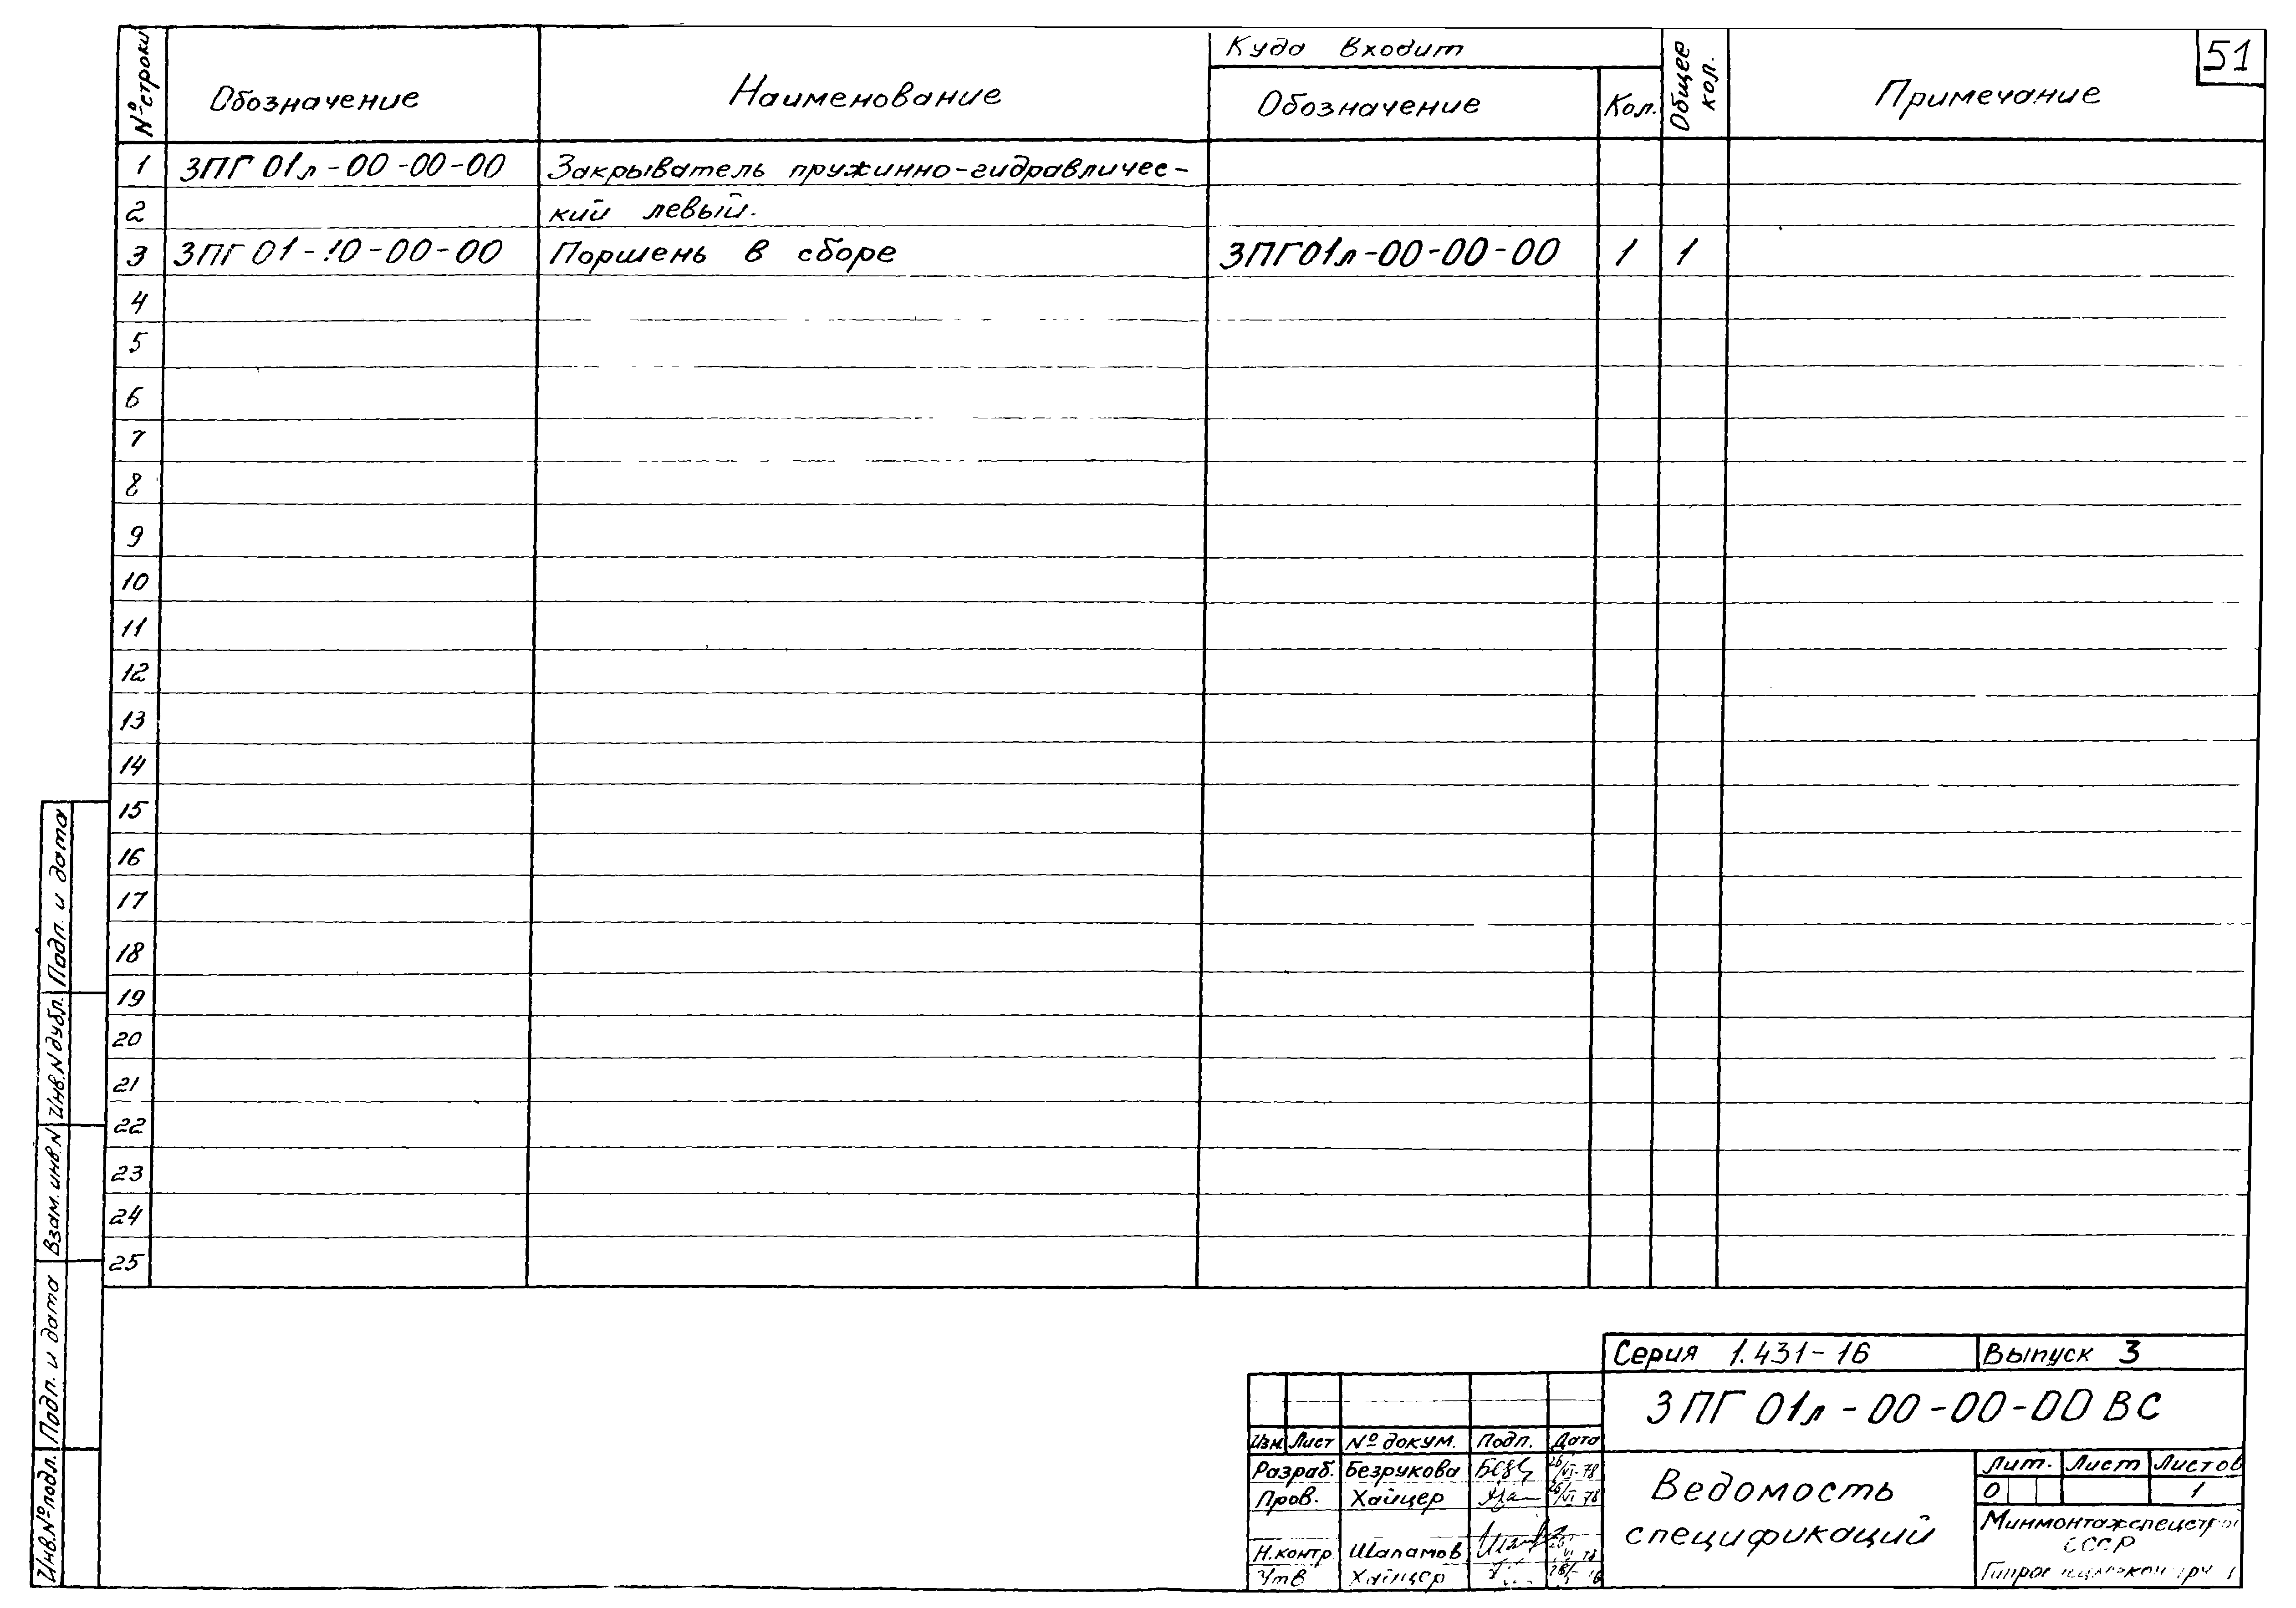 51
№ строки
Обозначение
Наименование
Куда входит
Обозначение
Кол.
Общее кол.
Примечание
1 ЗПГ 01л-00-00-00 Закрыватель пружинно-гидравличес-
2 кий левый.
3 ЗПГ 01-10-00-00 Поршень в сборе ЗПГ01л-00-00-00 1 1
4
5
6
7
8
9
10
11
12
13
14
15
16
17
18
19
20
21
22
23
24
25
Подп. и дата
Инв.N дубл.
Взам. инв.N
Подп. и дата
Инв.№ подл.
Серия 1.431-16 Выпуск 3
ЗПГ 01л-00-00-00 ВС
Изм. Лист № докум. Подп. Дата
Разраб. Безрукова 26/VI-78
Пров. Хайцер 26/VI 78
Н.контр. Шаламов
Утв Хайцер
Ведомость
спецификаций
Лит. Лист Листов
О 1
Минмонтажспецстрой
СССР